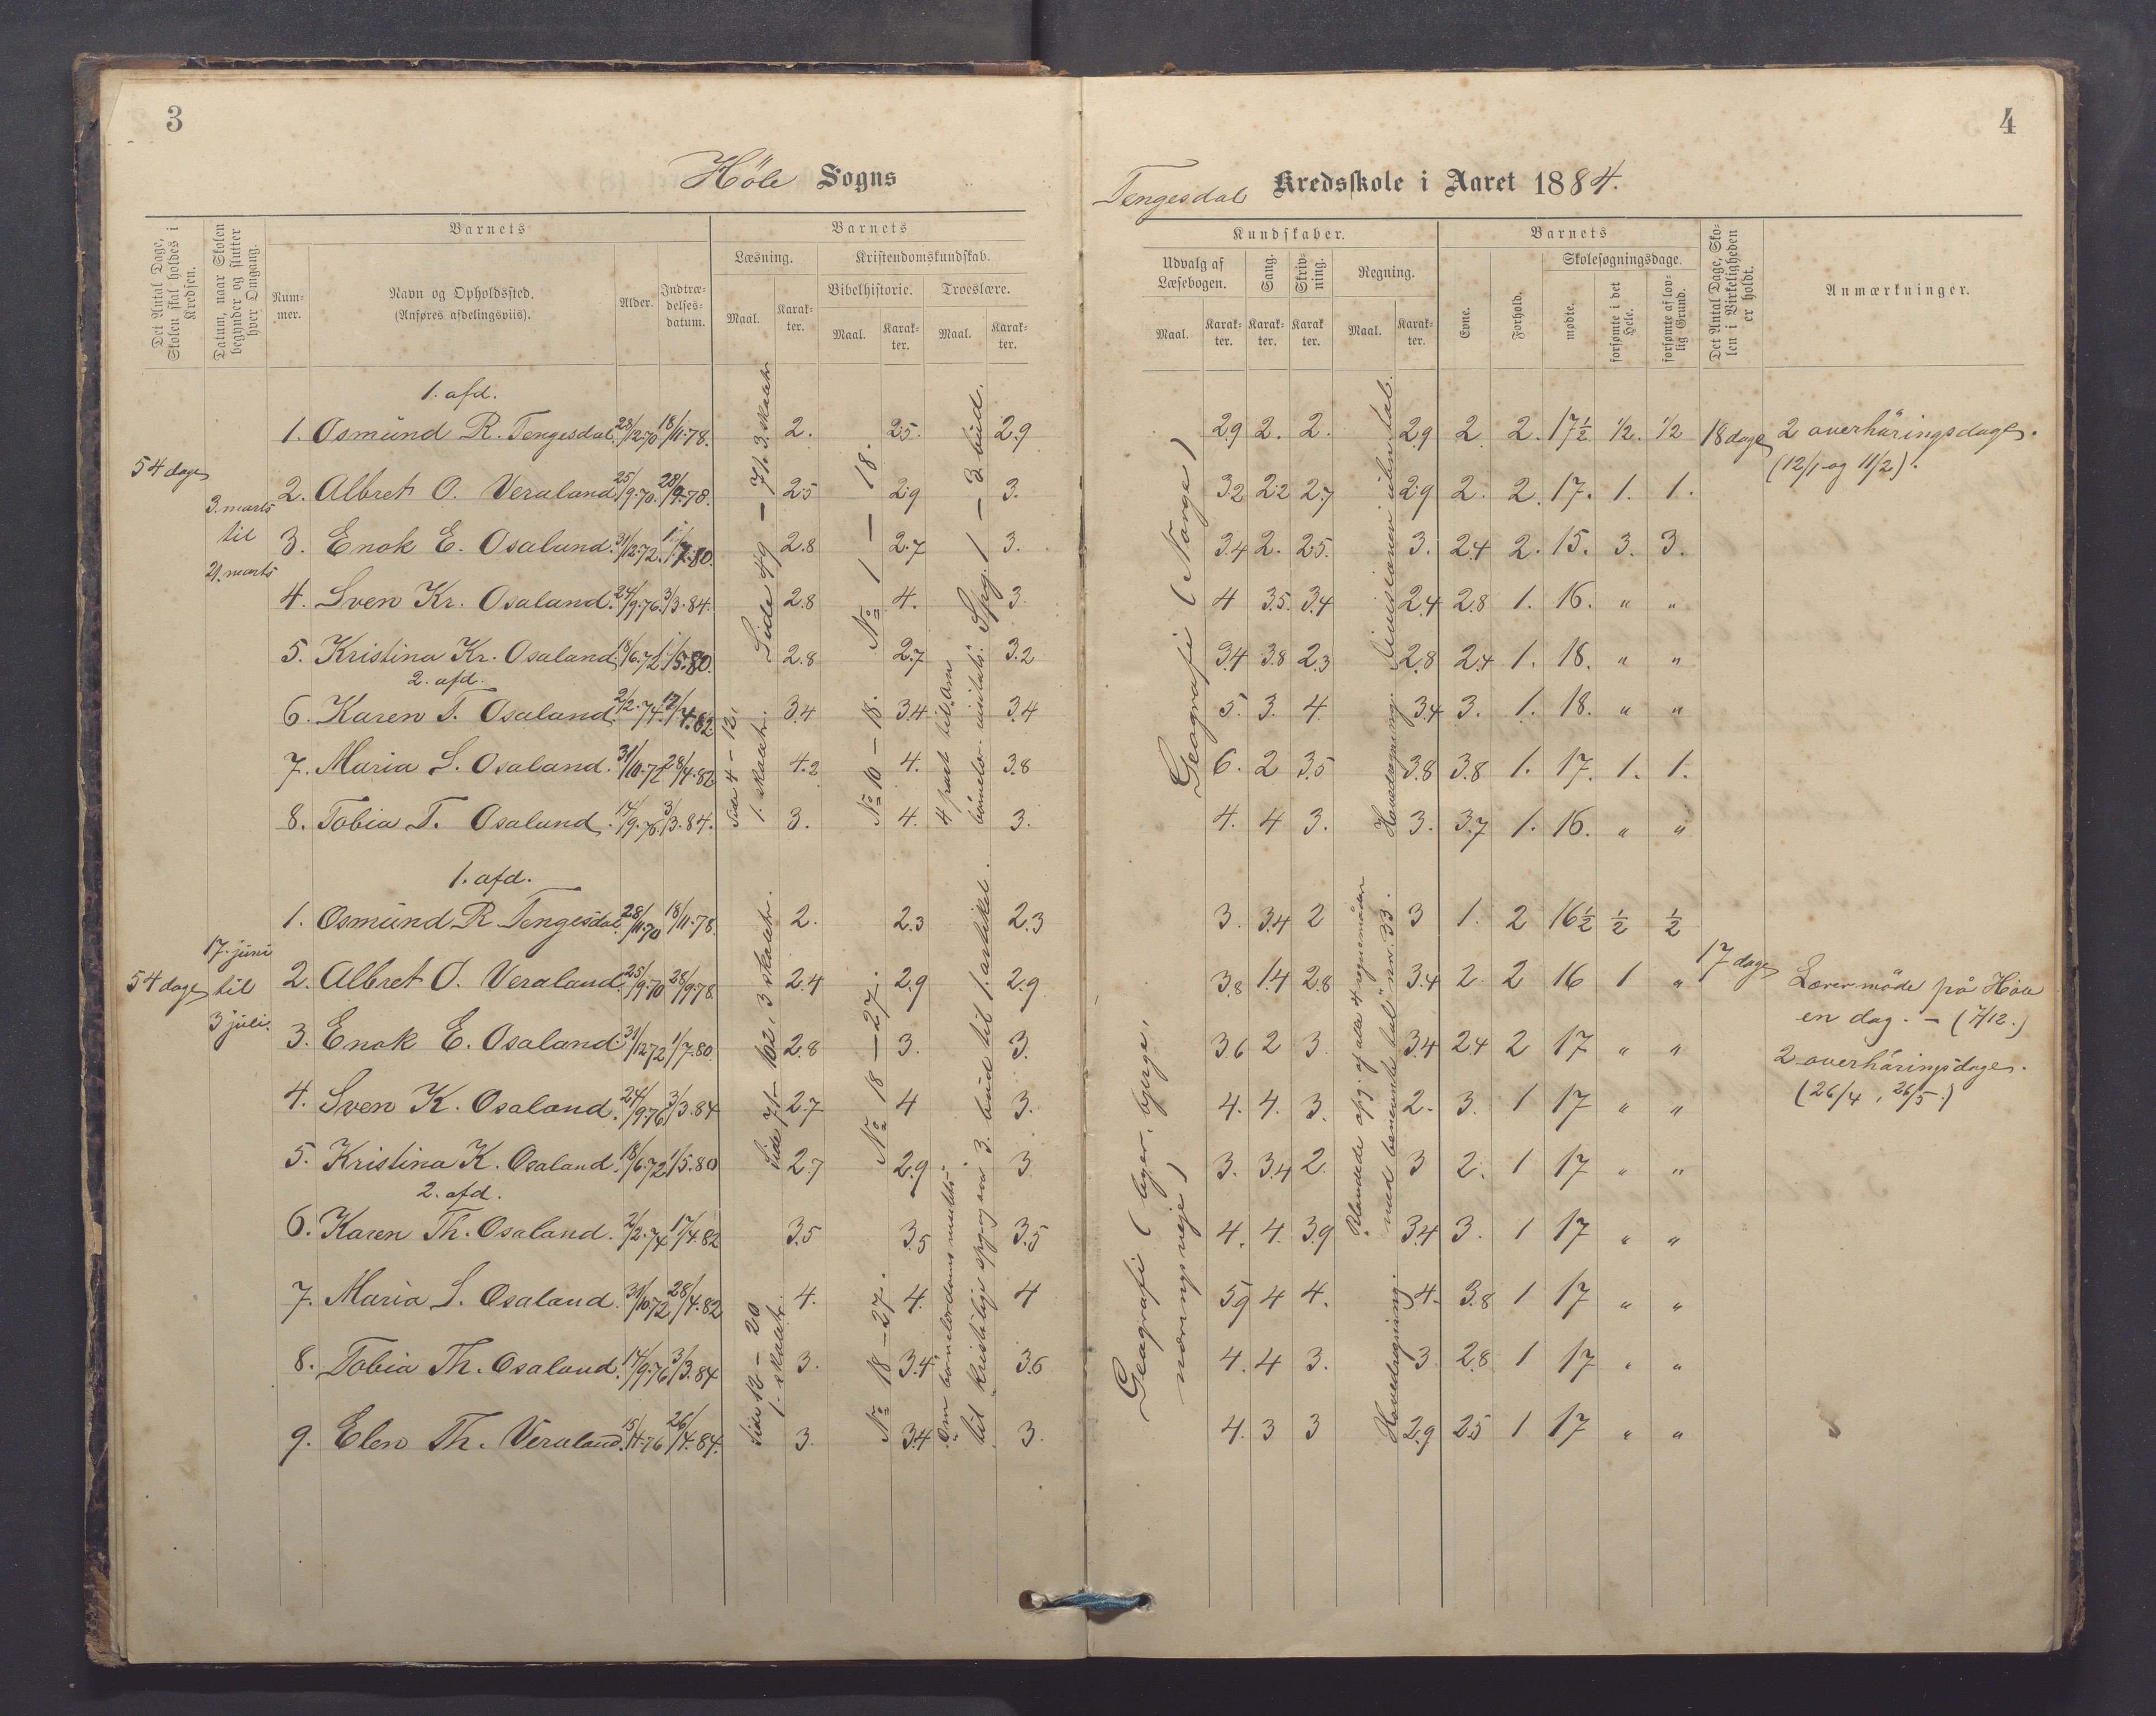 3
Höle Sogns
Det Antal Dage, Skolen skal holdes i Kredsen.
Datum, naar Skolen begynder og slutter hver Omgang.
Barnets
Num-
mer.
Navn og Opholdssted.
(Anføres afdelingsviis).
Alder.
Indtræ-
delses-
datum.
Barnets
Læsning.
Kristendomskundskab.
Bibelhistorie.
Troeslære.
Maal.
Karak-
ter.
Maal.
Karak-
ter.
Maal.
Karak-
ter.
1. afd.
1. Osmund R. Tengesdal 18/11.78. 2. 2.5. 2.9
54 dage
2. Albret O. Veraland 25/9.70. 28/9.78. 2.5 2.9 3.
3. marts
til
21. marts
3. Enok E. Osaland. 31/12.72. 1/7.80. 2.8 2.7 3.
4. Sven Kr. Osaland. 24/9.76. 3/3.84. 2.8 4. 3.
5. Kristina Kr. Osaland 18/6.72. 1/5.80. 2.8 2.7 3.2
2. afd.
6. Karen T. Osaland. 2/2.74. 17/4.82 3.4 3.4. 3.4
7. Maria S. Osaland. 31/10.72 28/4.82 4.2 4. 3.8
8. Tobia T. Osaland. 14/9.76. 3/3.84. 3. 4. 3.
Side 49 — 71. 3. skolebr.
No 1 — 18.
Spg. 1 — 3. bud.
Side 4 – 12,
1. skolebr.
No 10 – 18.
1. afd.
1. Osmund R Tengesdal. 28/11.70 18/11.78. 2. 2.3 2.3
17. juni
54 dage til
3 juli.
2. Albret O. Veraland 25/9.70 28/9.78. 2.4 2.9 2.9
3. Enok E. Osaland 31/12.72 1/7.80. 2.8 3. 3.
4. Sven K. Osaland. 24/9.76 3/3.84 2.7 4 3.
5. Kristina K. Osaland. 18/6.72 1/5.80 2.7 2.9 3.
2. afd.
6. Karen Th. Osaland. 2/2.74 17/4.82 3.5 3.5 3.5
7. Maria S. Osaland. 31/10.72 28/4.82 4. 4. 4
8. Tobia Th. Osaland. 14/9.76 3/3.84 3. 3.4 3.6
9. Elen Th. Veraland. 26/4.84. 3. 3.4 3.
Side 71 – 102. 3 skolebr.
No 18 — 27.
til 3. bud til 1. artikel.
Side 12 – 20
1. skolebr.
No 18 – 27.
4
Tengesdal Kredsskole i Aaret 1884.
Kundskaber.
Udvalg af
Læsebogen.
Sang.
Skriv-
ning.
Regning.
Maal.
Karak-
ter.
Karak-
ter.
Karak
ter.
Maal.
Karak-
ter.
Barnets
Evne.
Forhold.
Skolesøgningsdage.
mødte.
forsømte i det Hele.
forsømte af lov-
lig Grund.
Det Antal Dage, Sko-
len i Virkeligheden
er holdt.
Anmærkninger.
2.9 2. 2. 2.9 2 2. 17½ ½. ½ 18 dage 2 overhöringsdage.
(12/1 og 11/2).
3.2 2.2 2.7 2.9 2. 2. 17. 1. 1.
3.4 2. 2.5. 3. 2.4 2. 15. 3. 3.
4 3.5. 3.4 2.4 2.8 1. 16. " "
3.4 3.8 2.3 2.8 2.4 1. 18. " "
5. 3. 4. 3.4 3. 1. 18. " "
6. 2 3.5 3.8 3.8 1. 17. 1. 1.
4. 4 3. 3. 3.7 1. 16. " "
Geografi (Norge)
Hovedregning. Divisionen i uben. tal.
3. 3.4 2 3 1. 2 16½ ½ ½
17 dage
3.8 1.4 2.8 3.4 2 2 16 1 "
Lærermöde på Höle
en dag. – (7/12.)
3.6 2 3. 3.4 2.4 2 17 " "
2 overhöringsdage.
(26/4, 26/5.)
4. 4. 3. 2. 3. 1 17 " "
3. 3.4 2. 3 2. 1 17 " "
4. 4. 3.9 3.4 3. 1 17 " "
5.9 4 4. 4. 3.8 1 17 " "
4. 4 3. 3. 2.8 1 17 " "
4. 3 3 2.9 2.5 1 17 " "
Geografi (byer, bjerge,
næringsveje)
Blandede opg. af alle 4 regnemåder
med benævnte tal" nr. 33.
Hovedregning.